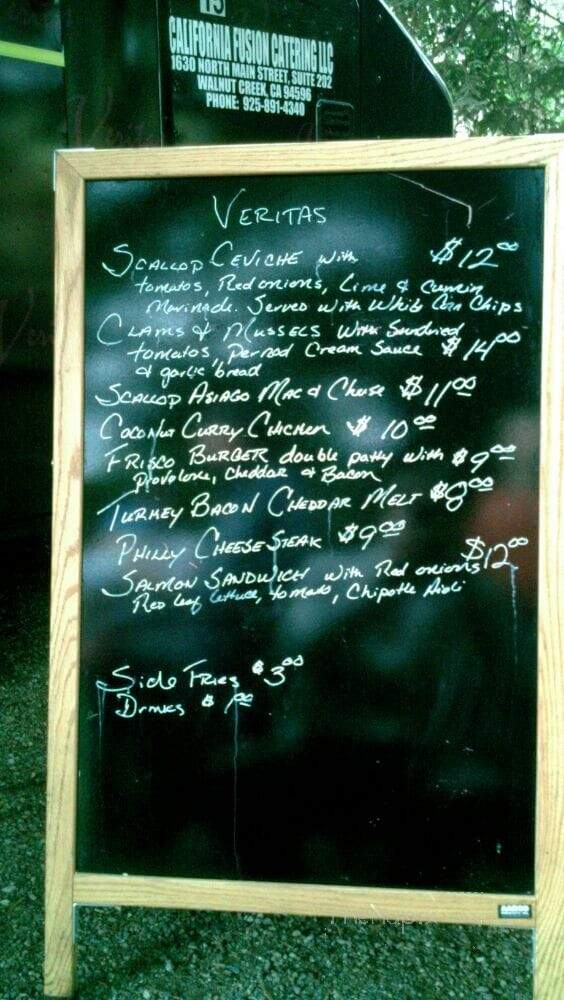 15
CALIFORNIA FUSION CATERING LLC
1630 NORTH MAIN STREET, SUITE 202
WALNUT CREEK, CA 94596
PHONE: 925-891-4340
VERITAS
SCALLOP CEVICHE with $12.00
tomatos, Red onions, Lime & Cumin
Marinade. Served with White Corn Chips
CLAMS & MUSSELS with Sundried
tomatos, Pernod Cream Sauce $14.00
& garlic bread
SCALLOP ASIAGO MAC & Cheese $11.00
COCONUT CURRY CHICKEN $10.00
FRISCO BURGER double patty with $9.00
Provolone, Cheddar & Bacon
TURKEY BACON CHEDDAR MELT $8.00
PHILLY CHEESE STEAK $9.00
SALMON SANDWICH with Red onions $12.00
Red leaf lettuce, tomato, Chipotle Aioli
Side FRIES $3.00
DRINKS $1.00